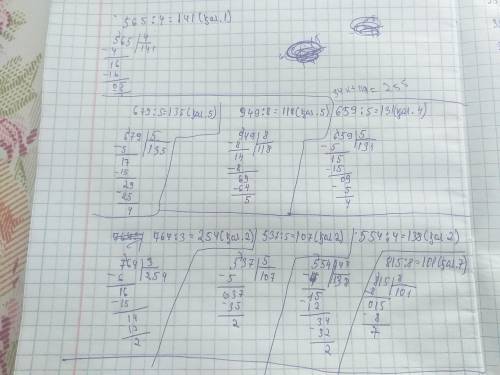 565:4=141(қал.1)
565|4
-4 |141
16
-16
05
679:5=135(қал.5) 949:8=118(қал.5) 659:5=131(қал.4)
679|5 949|8 659|5
-5 |135 -8 |118 -5 |131
17 14 15
-15 -8 -15
29 69 09
-25 -64 -5
4 5 4
764:3=254(қал.2) 537:5=107(қал.2) 554:4=138(қал.2)
815:8=101(қал.7)
764|3 537|5 554|4 815|8
-6 |254 -5 |107 -4 |138 -8 |101
16 037 15 015
-15 -35 -12 -8
14 2 34 7
12 -32
2 2